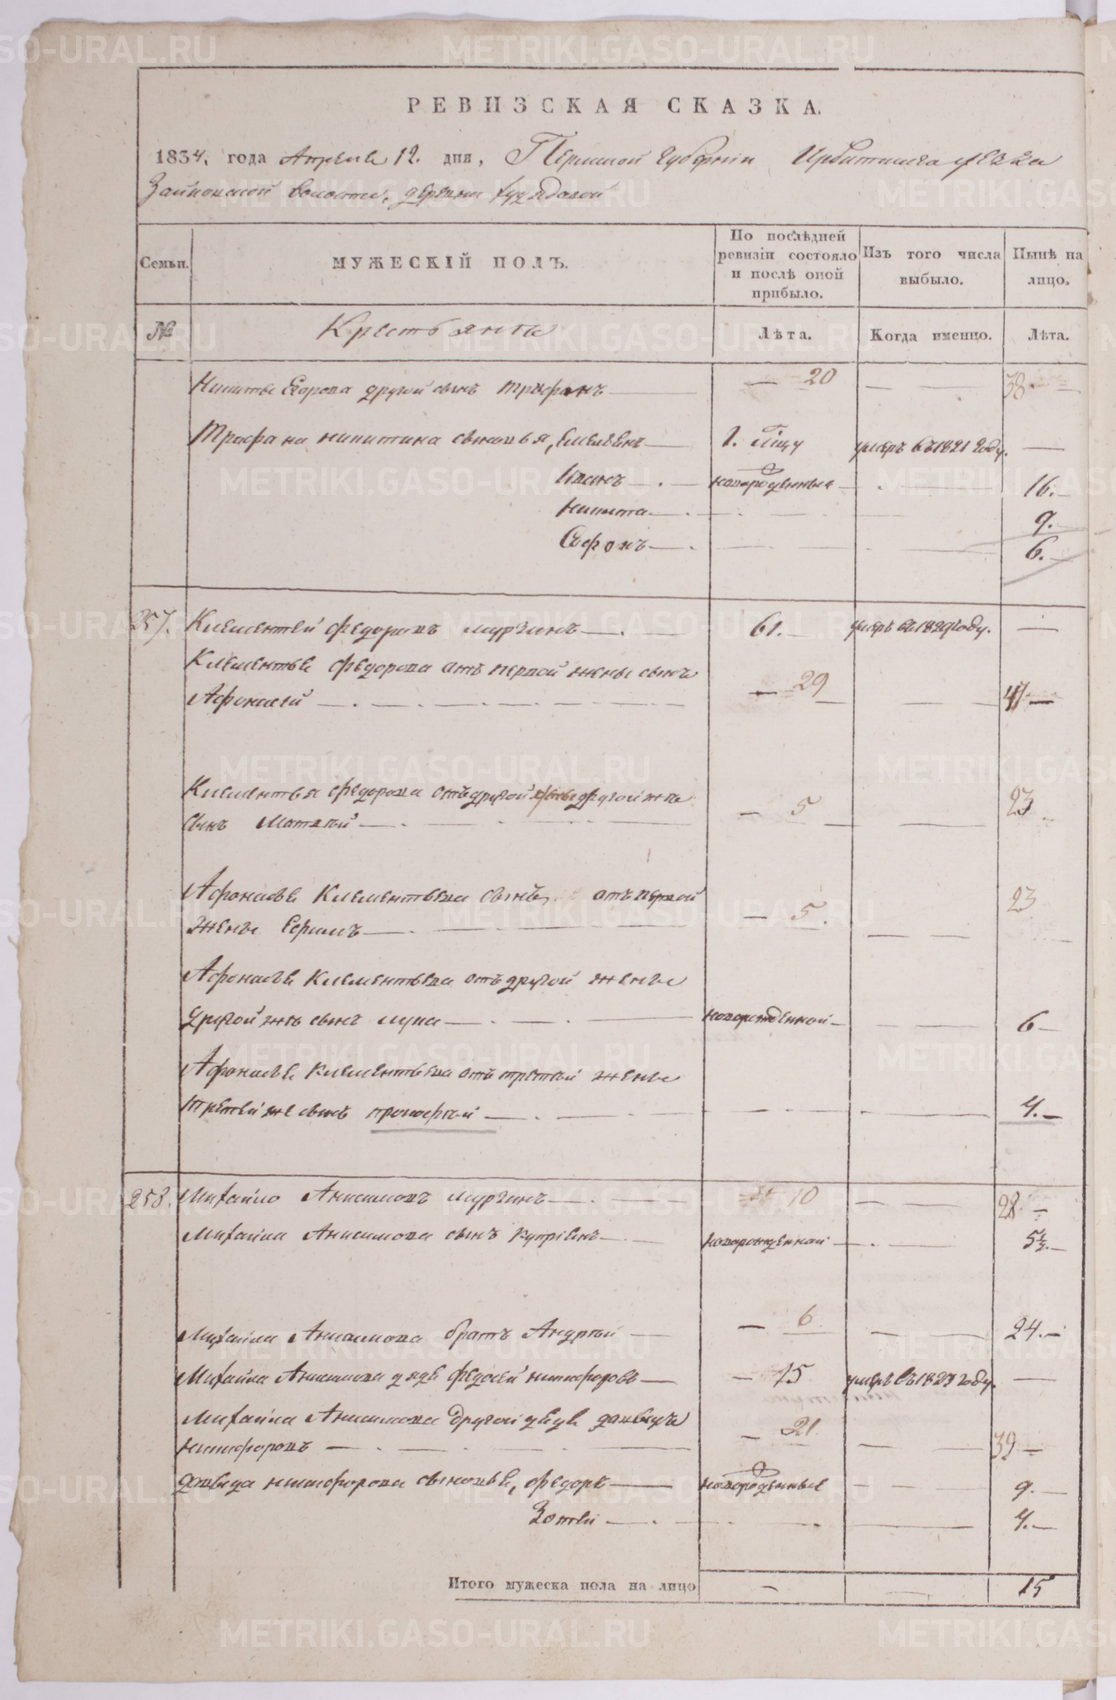 РЕВИЗСКАЯ СКАЗКА.
1834, года Апреля 12. дня, Пермской губернiи Ирбитскаго уезда
волости, деревни
Семьи.
МУЖЕСКIЙ ПОЛЪ.
По послѣдней ревизiи состояло и послѣ оной прибыло.
Изъ того числа выбыло.
Нынѣ на лицо.
№
Крестьяне
Лѣта.
Когда именно.
Лѣта.
Никиты Егорова другой сынъ Трифонъ — 20 — 38
Трифона никитина сыновья, Емельянъ 1. умеръ въ 1821 году. —
Иванъ новорожденные 16.
Никита 9.
Софонъ 6.
257. Клементей федоровъ мурзинъ 61. умеръ въ 1829 году. —
Клементья федорова отъ первой жены сынъ
Афонасей — 29 47
Клементья федорова отъ другой жены другой же
сынъ Матвей — 5 23
Афонасья Клементьева сынъ отъ первой
жены Ефимъ — 5. 23
Афонасья Клементьева отъ другой жены
другой же сынъ лупа новорожденной 6
Афонасья клементьева отъ третьей жены
третей же сынъ прокофей 4.
258. Михайло Анисимовъ мурзинъ 10 — 28
Михайла Анисимова сынъ Купрiянъ новорожденной 5½.
Михайла Анисимова братъ Андрей — 6 — 24.
Михайла Анисимова дядя федосей никифоровъ — 15 умеръ въ году. —
Михайла Анисимова другой дядя давыдъ
никифоровъ — 21 — 39
давыда никифорова сыновья, федоръ новорожденные 9.
Зотей 4.
Итого мужеска пола на лицо — — 15
METRIKI.GASO-URAL.RU